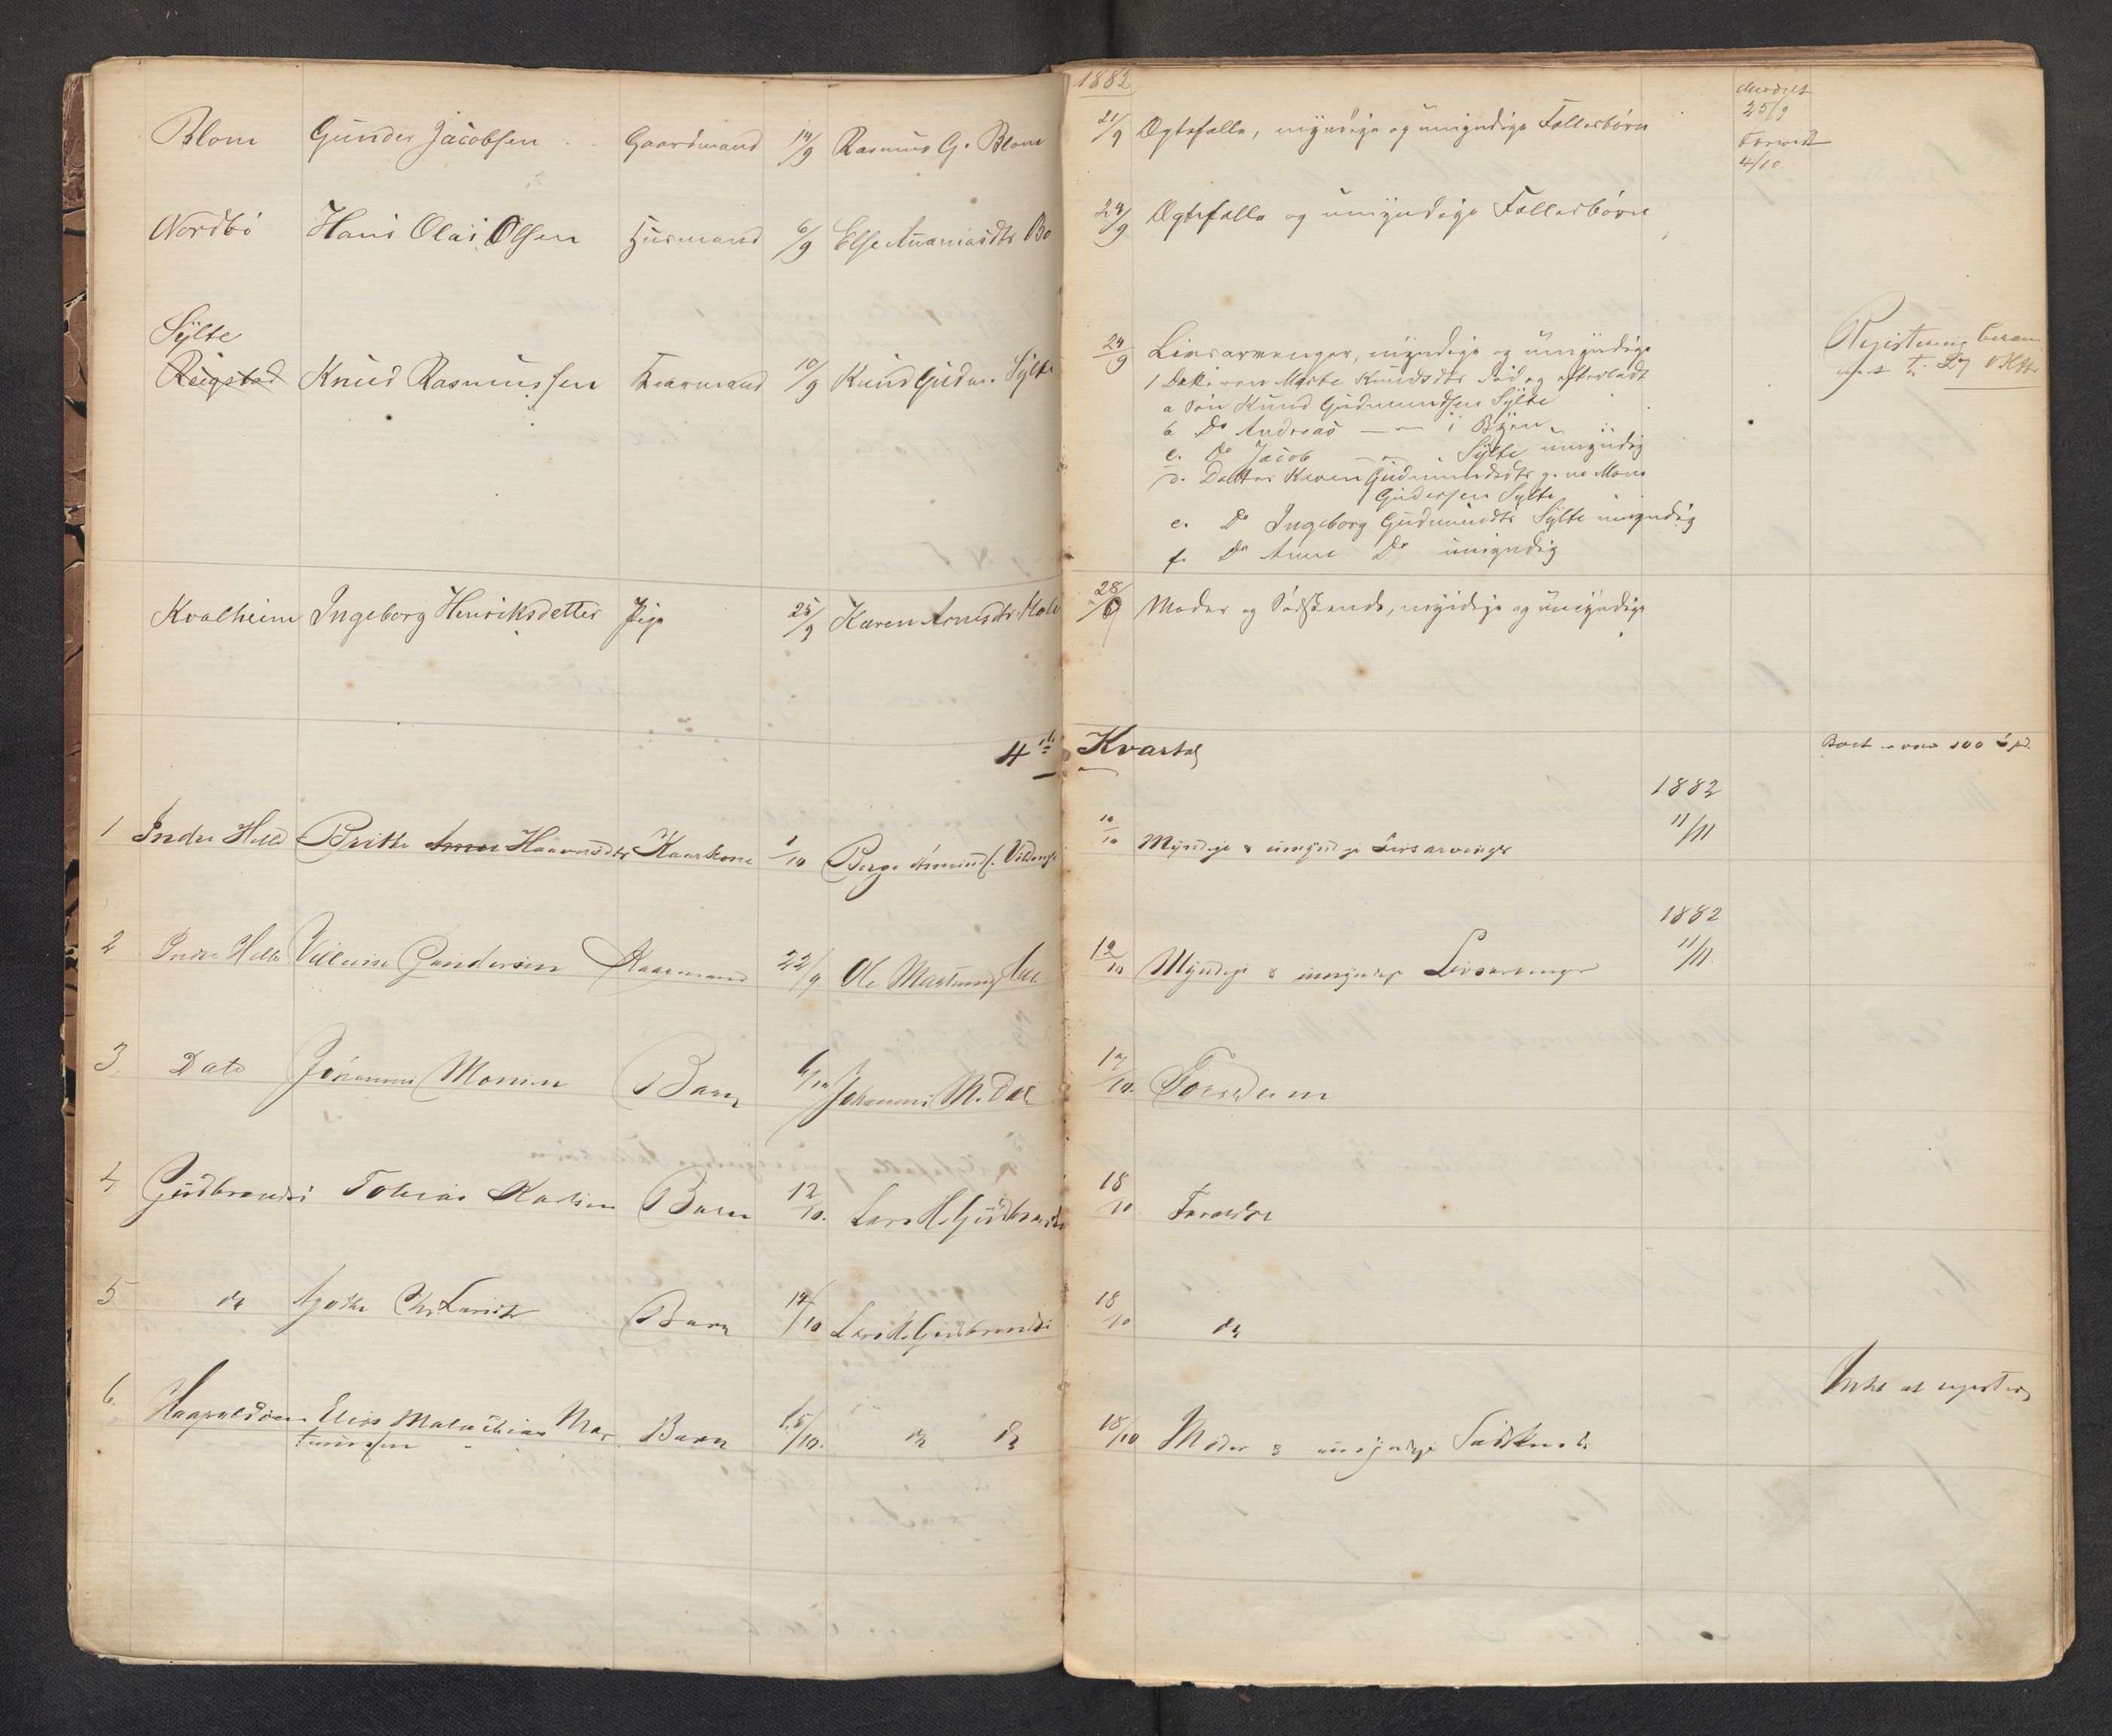 1882
Blom Gunder Jacobsen Gaardmand 14/9 Rasmus G. Blom 21/9 Ægtefælle, myndige og umyndige Fællesbørn
25/9
4/10
Nordbö Hans Olai Olsen Husmand 6/9 Else Ananiasdtr Bo 24/9 Ægtefælle og umyndige Fællesbörn
Sylte
Reigstad Knud Rasmussen Kaarmand 10/9 Knud Gudm. Sylte 24/9 Livsarvinger, myndige og umyndige
1 Datteren Marte Knudsdtr död og efterladt
a Sön Knud Gudmundsen Sylte
b Do Andreas — " — i Byen
c. Do Jacob — " — Sylte umyndig
d. Datter Karen Gudmundsdtr g. m Mons
Gudersen Sylte
e. Do Ingeborg Gudmundtr Sylte umyndig
f. Do Anne Do umyndig
Registrering
Kvalheim Ingeborg Henriksdotter Pige 25/9 Karen Arnesdtr 28/9 Moder og Södskende, myndige og umyndige
4de Kvartal
Boet over 100 Spd.
1882
1 Indre Helle Brithe Anne Kaarkone 1/10 Berge 10/10 Myndige & umyndige Livsarvinger 11/11
1882
2 Indre Helle Villum Gundersen Kaarmand 22/9 Ole 12/10 Myndige & umyndige Livsarvinger 11/11.
3 Dale Johannes Monsen Barn 6/10 Johannes M. Dale 17/10.
4 Gudbrandsö Tobias Karlsen Barn 12/10. Lars H. Gudbrandsö 18/10 Forældre
5 do Barn 14/10 Lars H. Gudbrandsö 18/10 do
6. Elias Malachias Mar
tinussen Barn 15/10. do do 18/10 Moder & umyndige Södskende
Intet at registrere